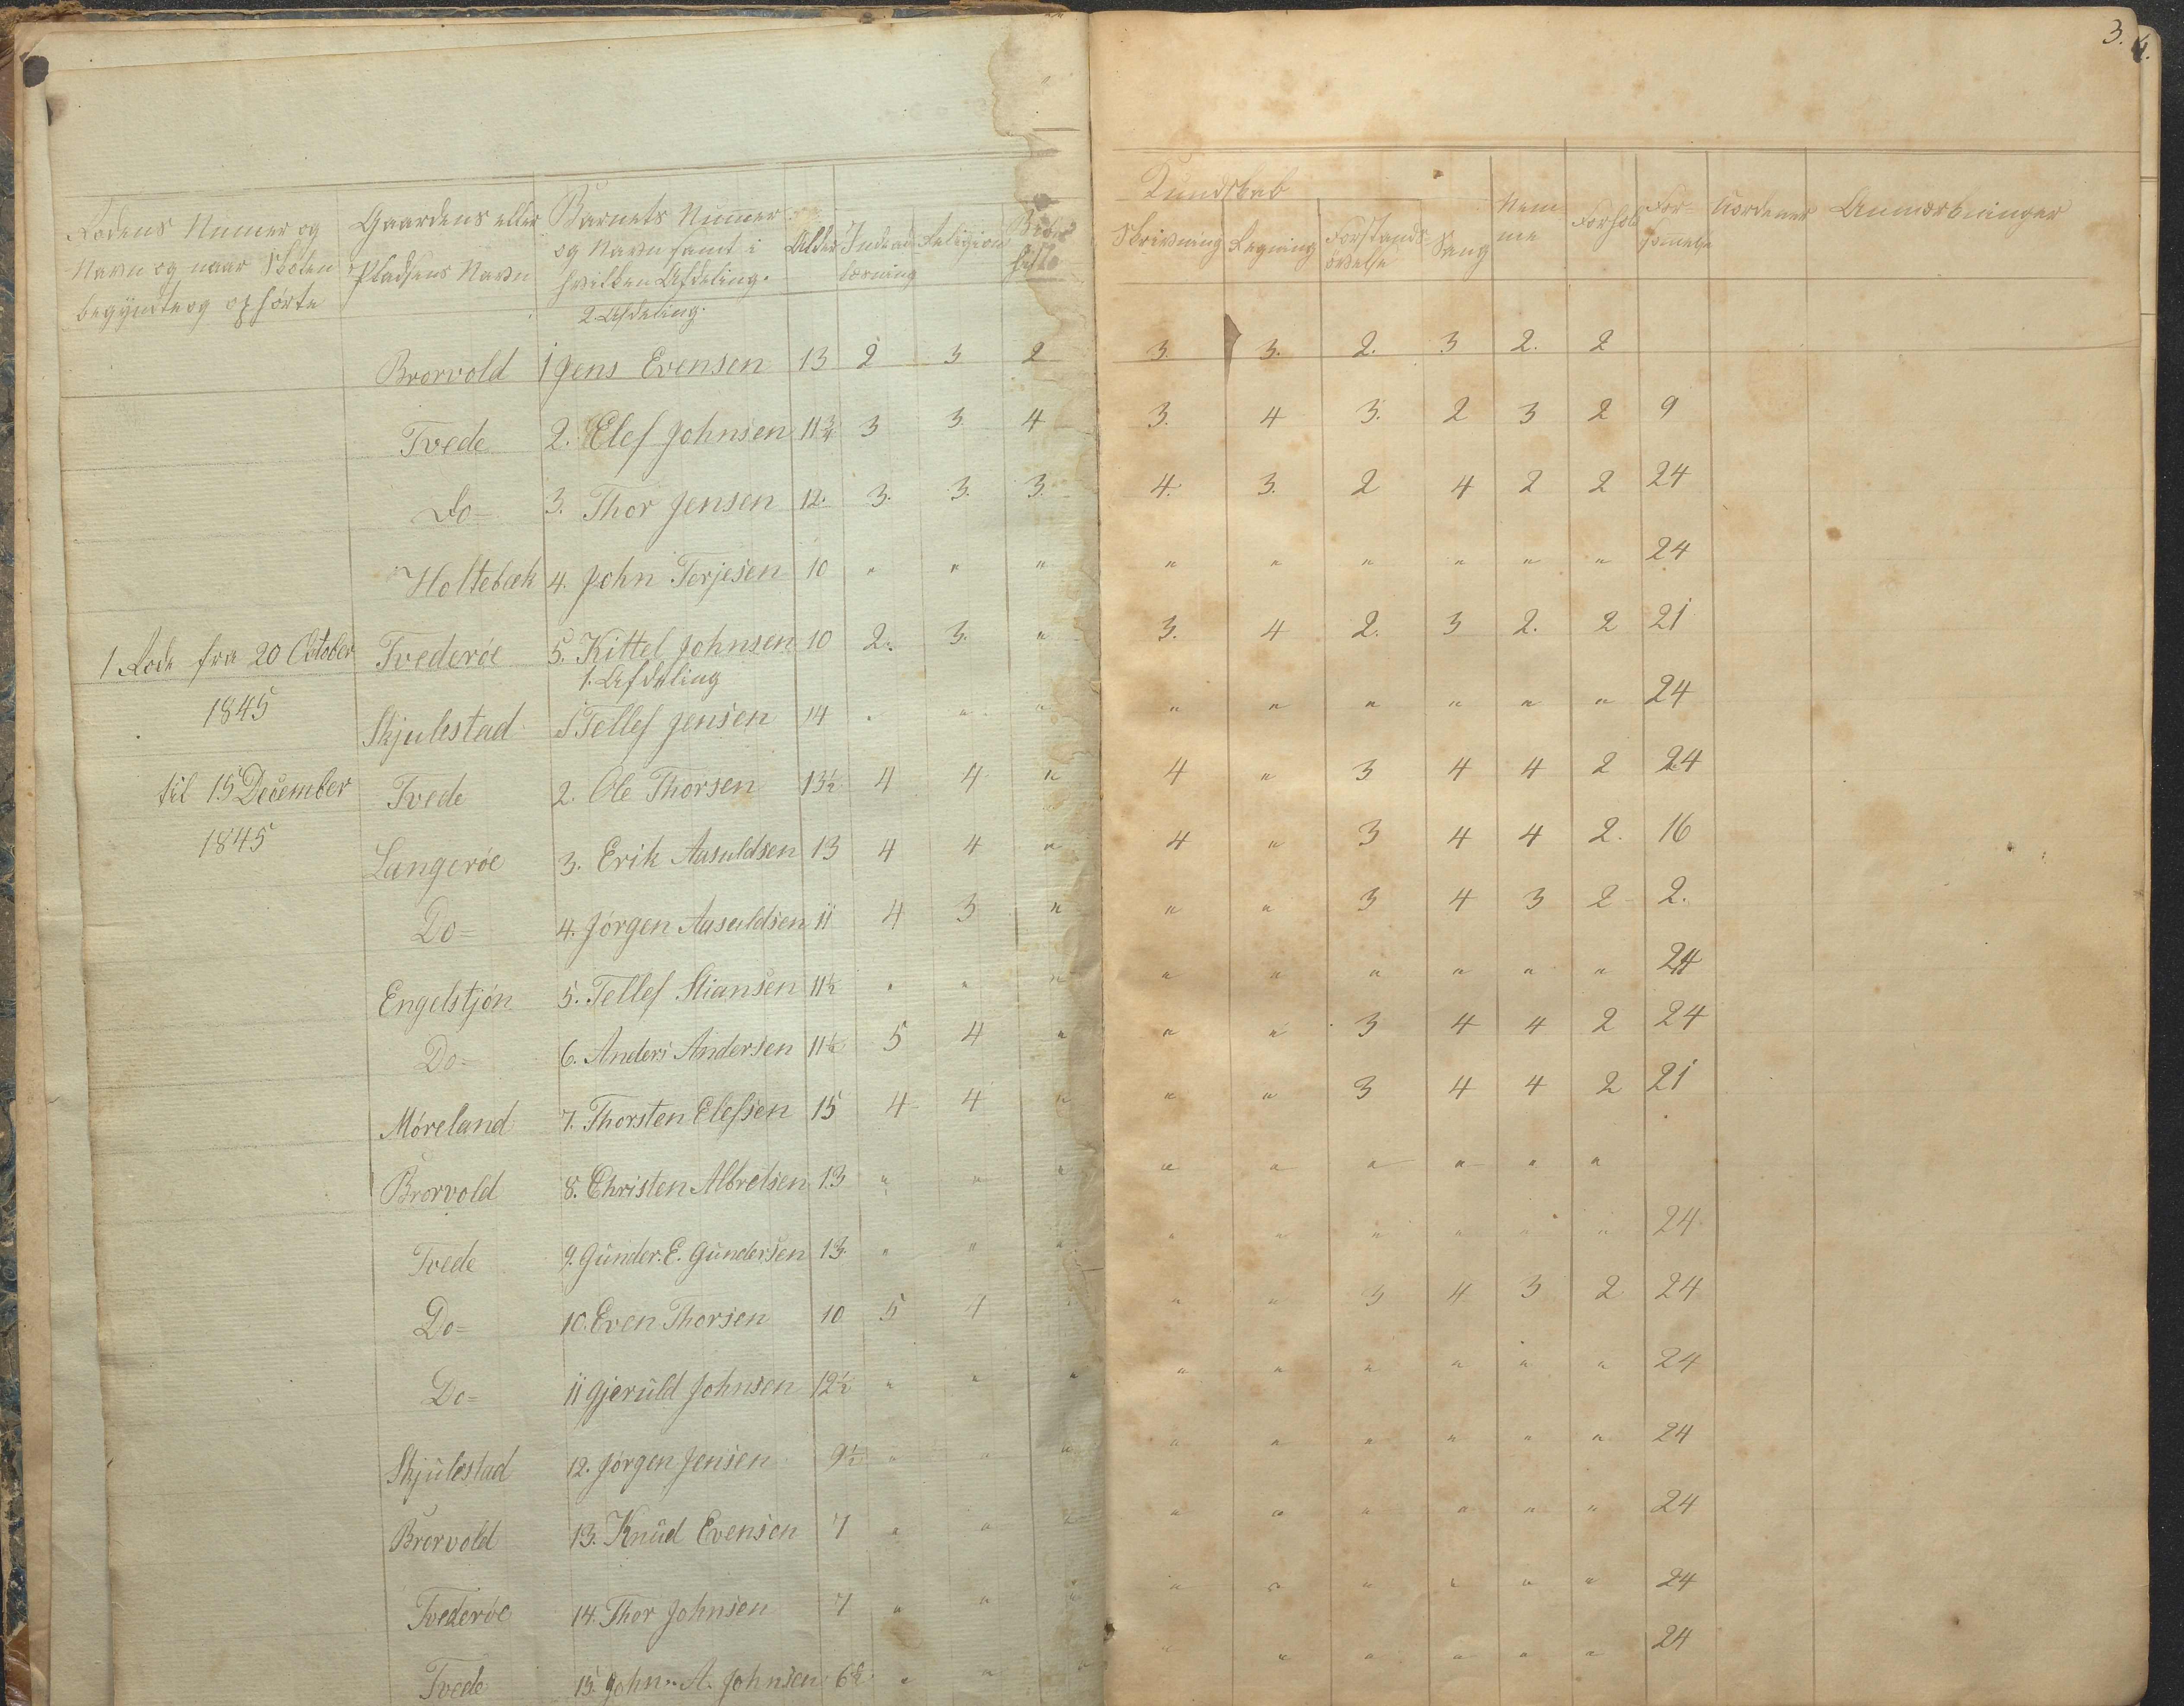 3. 4.
Rodens Numer og Navn og naar Skolen begyndte og ophørte
Gaardens eller Pladsens Navn
Barnets Nummer og Navn samt i hvilken Afdeling.
Alder
Indenadlæsning
Religion
Kundskab
Skrivning
Regning
Forstandsøvelse
Sang
Nemme
Forhold
Forsømmelse
Anmærkninger
2. Afdeling.
Brorvold 1 Jens Evensen 13 2 3 2 3. 3. 2. 3 2. 2
Tvede 2. Elef Johnsen 11 3/4 3 3. 4 3. 4 3. 2 3 2 9
Do 3. Thor Jensen 12. 3. 3. 3. 4. 3. 2 4 2 2 24
Holtebæk 4. John Terjesen 10 " " " " " " " " " 24
1 Rode fra 20 October Tvederöe 5. Kittel Johnsen 10 2. 3. " 3. 4 2. 3 2. 2 21
1. Afdeling
1845 Skjulestad 1 Tellef Jensen 14 " " " " " " " " " 24
til 15 December Tvede 2. Ole Thorsen 13 1/2 4 4 " 4 " 3 4 4 2 24
1845 Langeröe 3. Erik Aasuldsen 13 4 4 " 4 " 3 4 4 2. 16
Do= 4. Jörgen Aasuldsen 11 4 3 " " " 3 4 3 2 2.
Engelstjön 5. Tellef Stiansen 11 1/2 " " " " " " " " " 24
Do= 6. Anders Andersen 11 1/2 5 4 " " " 3 4 4 2 24
Möreland 7. Thorsten Elefsen 15 4 4 " " " 3 4 4 2 21
Brorvold 8. Christen Albretsen 13 " " " " " " " " "
Tvede 9. Gunder. E. Gundersen 13. " " " " " " " " " 24
Do= 10. Even Thorsen 10 5 4 " " " 3 4 3 2 24
Do= 11 Gjeruld Johnsen 12 1/2 " " " " " " " " " 24
Skjulestad 12. Jörgen Jensen 9 1/2 " " " " " " " " " 24
Brorvold 13. Knud Evensen 7 " " " " " " " " " 24
Tvederöe 14. Thor Johnsen 7 " " " " " " " " " 24
Tvede 15. John A. Johnsen " " " " " " " " " 24